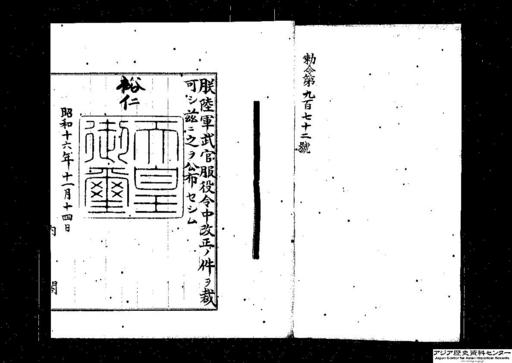 勅令第九百七十二號
朕陸軍武官服役令中改正ノ件ヲ裁
可シ茲ニ之ヲ公布セシム
裕仁
天皇
御璽
昭和十六年十一月十四日
内閣
アジア歴史資料センター
Japan Center for Asian Historical Records